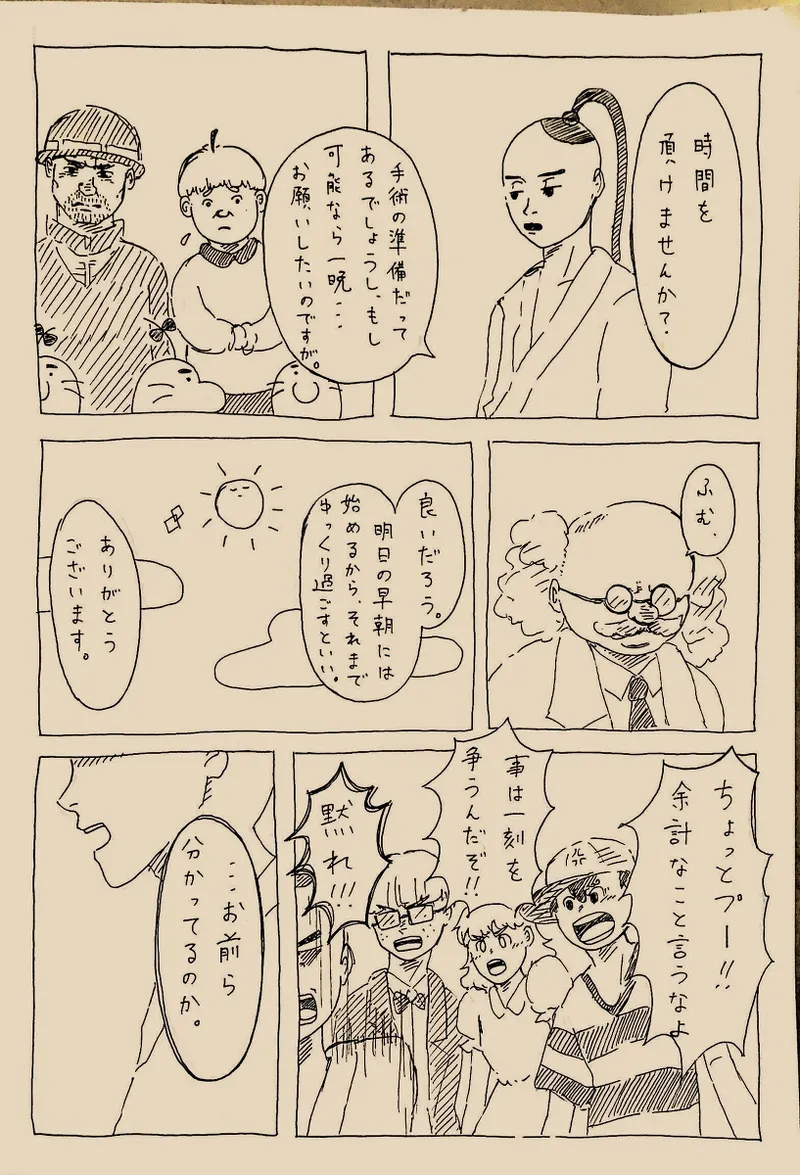 時間を
頂けませんか?
手術の準備だって
あるでしょうし、もし
可能なら一晩...
お願いしたいのですが。
ふむ.
良いだろう。
明日の早朝には
始めるから、それまで
ゆっくり過ごすといい。
ありがとう
ございます。
ちょっとプー!!
余計なこと言うなよ
事は一刻を
争うんだぞ!!
黙れ!!!
...お前ら
分かってるのか。